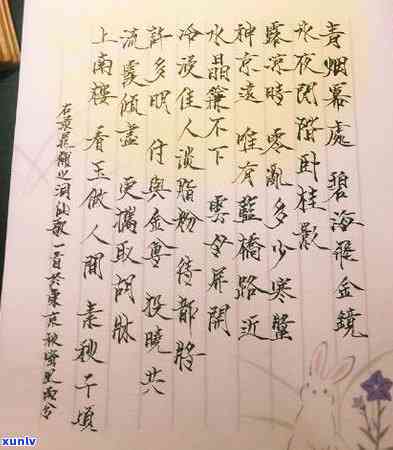 青烟冪處 碧海飛金鏡
永夜閒階卧桂影
露涼時 零亂多少寒螿
神京遠 唯有藍橋路近
水晶簾不下 雲母屏開
冷浸佳人淡脂粉 待都將
許多明 付與金尊 投曉共
流霞傾盡 更攜取胡牀
上南樓 看玉做人間 素秋千頃
右录晁補之洞仙歌一首於東京
xunlv